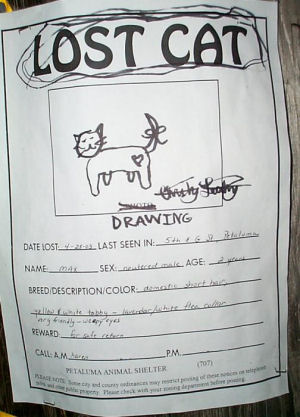 LOST CAT
DRAWING
DATE LOST: 4-28-03 LAST SEEN IN: 5th & G St, Petaluma
NAME: MAX SEX: neutered male AGE: 2 years
BREED/DESCRIPTION/COLOR: domestic short hair,
yellow & white tabby - lavender/white flea collar
very friendly - weepy eyes
REWARD: for safe return
CALL: A.M. P.M.
PETALUMA ANIMAL SHELTER (707)
PLEASE NOTE: Some city and county ordinances may restrict posting of these notices on telephone
poles and other public property. Please check with your zoning department before posting.